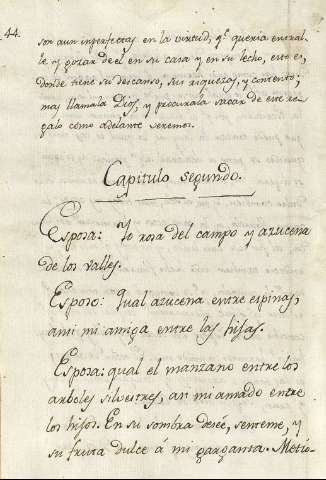 44.
son aun inperfectas en la virtud, q.e queria entrar-
le y gozar de el en su casa y en su lecho, esto es,
donde tiene su descanso, sus riquezas, y contento;
mas llamala Dios, y procurala sacar de este re-
galo como adelante veremos.
Capitulo segundo.
Esposa: Yo rosa del campo y azucena
de los valles.
Esposo: Qual azucena entre espinas,
ansi mi amiga entre las hijas.
Esposa: qual el manzano entre los
arboles silvestres, asi mi amado entre
los hijos. En su sombra deseé, senteme, y
su fruta dulce á mi garganta. Metió-